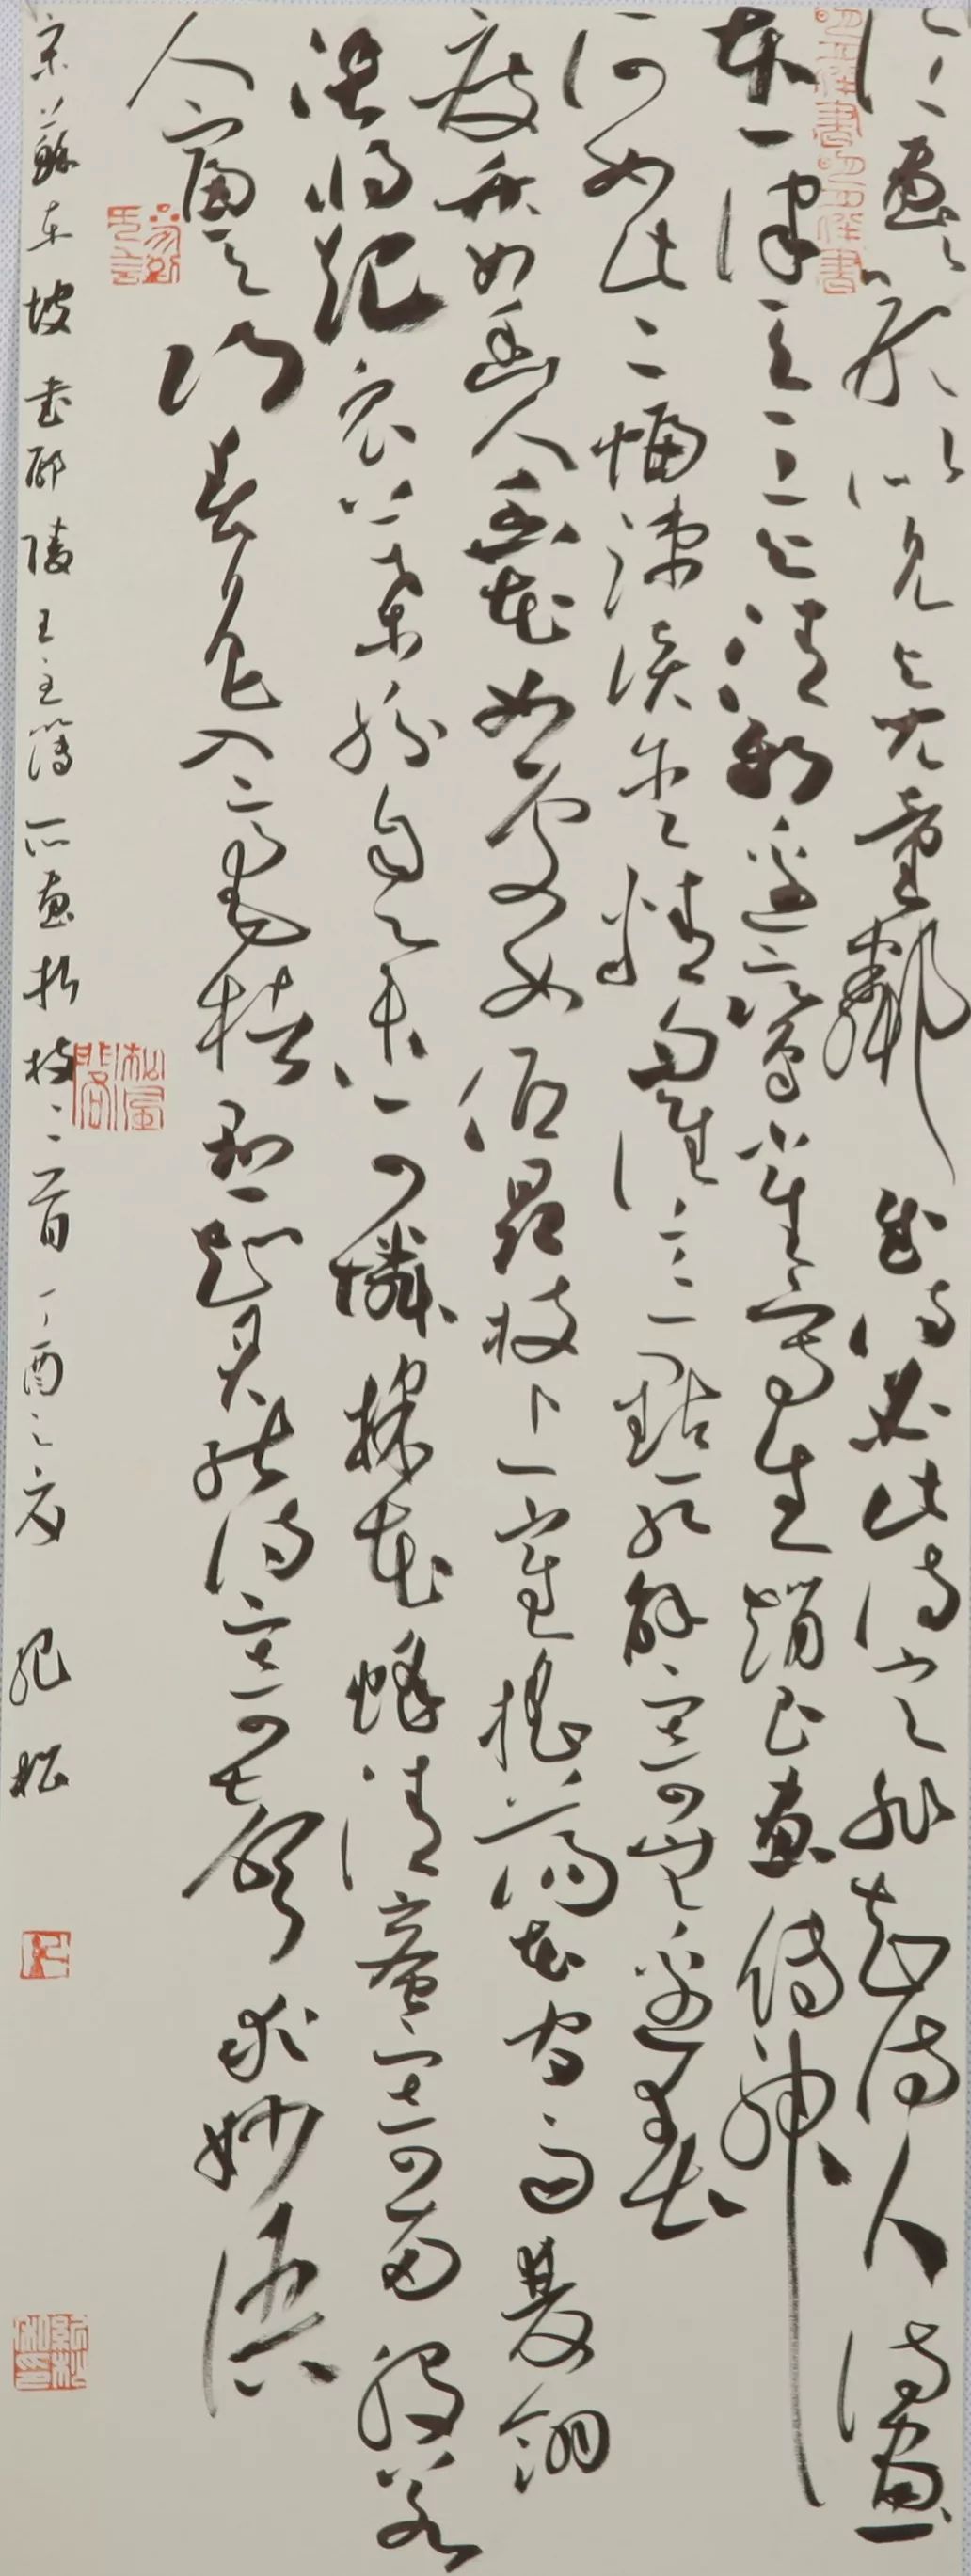 論畫以形似見與兒童鄰賦詩必此詩定非知詩人詩畫
本一律天工與清新邊鸞雀寫生趙昌畫傳神
何如此二幅疎淡含精勻誰言一點紅解寄無邊春
瘦竹如幽人幽花如處女低昂枝上雀搖蕩花間雨雙翎
決將起衆葉紛自舉可憐採花蜂清蜜寄兩股若
人富天巧春色入毫楮懸知君能詩寄聲求妙語
宋蘇東坡書鄢陵王主簿所畫折枝二首丁酉之夏
松風閣